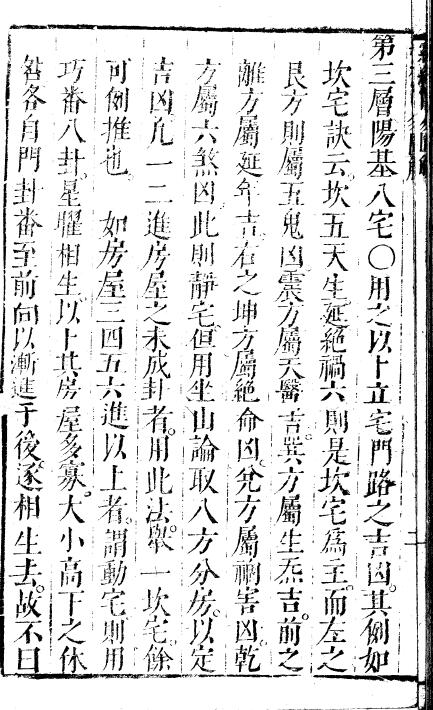 第三層陽基八宅〇用之以卜立宅門路之吉凶其例如
坎宅訣云坎五天生延絕禍六則是坎宅爲主而左之
艮方則屬五鬼凶震方屬天醫吉巽方屬生炁吉前之
離方屬延年吉右之坤方屬絕命凶兌方屬禍害凶乾
方屬六煞凶此則靜宅但用坐山論取八方分房以定
吉凶允一二進房屋之未成卦者用此法舉一坎宅餘
可例推也　如房屋三四五六進以上者謂動宅則用
巧番八卦星曜相生以卜其房屋多寡大小高下之休
咎各自門卦番至前向以漸進于後逐相生去故不曰